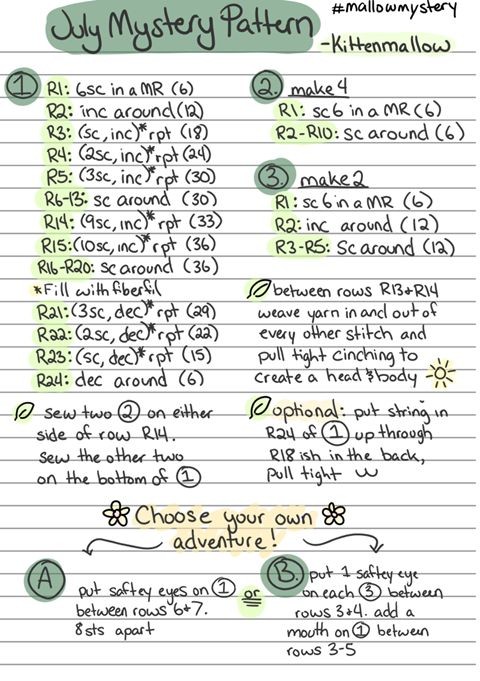 July Mystery Pattern
#mallowmystery
-Kittenmallow
① R1: 6sc in a MR (6)
R2: inc around (12)
R3: (sc, inc)* rpt (18)
R4: (2sc, inc)* rpt (24)
R5: (3sc, inc)* rpt (30)
R6-13: sc around (30)
R14: (9sc, inc)* rpt (33)
R15: (10sc, inc)* rpt (36)
R16-R20: sc around (36)
*Fill with fiberfil
R21: (3sc, dec)* rpt (29)
R22: (2sc, dec)* rpt (22)
R23: (sc, dec)* rpt (15)
R24: dec around (6)
sew two ② on either
side of row R14.
sew the other two
on the bottom of ①
2. make 4
R1: sc6 in a MR (6)
R2-R10: sc around (6)
3. make 2
R1: sc6 in a MR (6)
R2: inc around (12)
R3-R5: Sc around (12)
between rows R13+R14
weave yarn in and out of
every other stitch and
pull tight cinching to
create a head & body
optional: put string in
R24 of ① up through
R18 ish in the back,
pull tight
Choose your own
adventure!
A
put saftey eyes on ①
between rows 6+7.
8sts apart
or
B. put 1 saftey eye
on each ③ between
rows 3+4. add a
mouth on ① between
rows 3-5